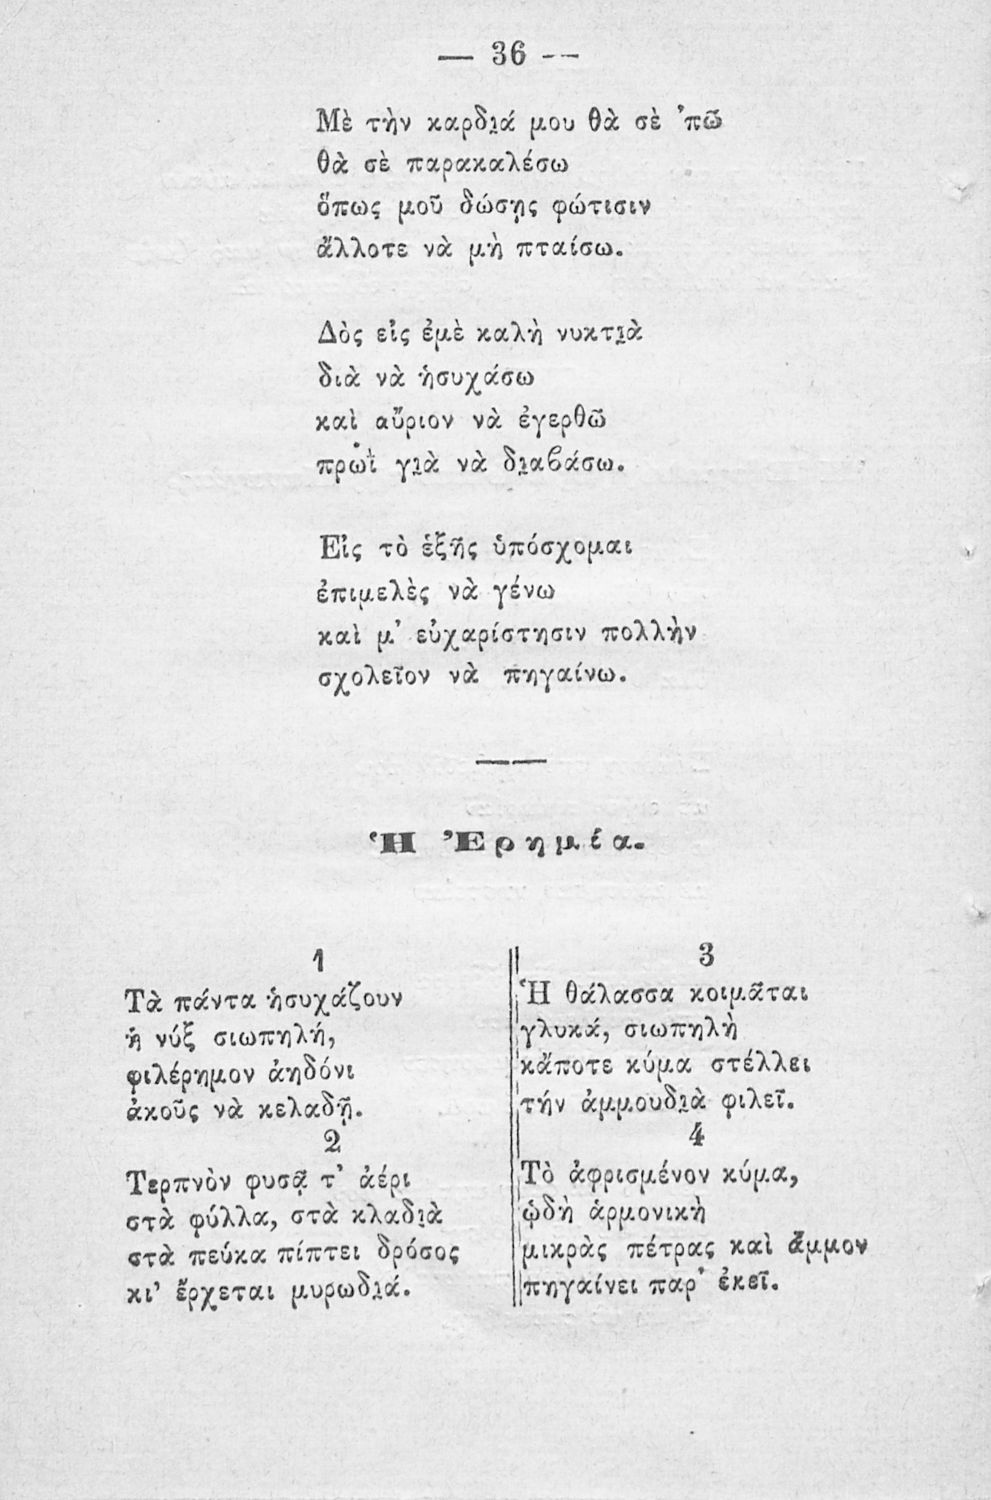 — 36 —
Μὲ τὴν καρδι̯ά μου θὰ σὲ ᾿πῶ
θὰ σὲ παρακαλέσω
ὅπως μοῦ δώσῃς φώτισιν
ἄλλοτε νὰ μὴ πταίσω.
Δὸς εἰς ἐμὲ καλὴ νυκτι̯ὰ
διὰ νὰ ἡσυχάσω
καὶ αὔριον νὰ ἐγερθῶ
πρωῒ γι̯ὰ νὰ δι̯αβάσω.
Εἰς τὸ ἑξῆς ὑπόσχομαι
ἐπιμελὲς νὰ γένω
καὶ μ᾿ εὐχαρίστησιν πολλὴν
σχολεῖον νὰ πηγαίνω.
Ἡ Ἐρημέα.
1
Τὰ πάντα ἡσυχάζουν
ἡ νύξ σιωπηλή,
φιλέρημον ἀηδόνι
ἀκοῦς νὰ κελαδῇ.
2
Τερπνὸν φυσᾷ τ᾿ ἀέρι
στὰ φύλλα, στὰ κλαδι̯ὰ
στὰ πεύκα πίπτει δρόσος
κι᾿ ἔρχεται μυρωδι̯ά.
3
Ἡ θάλασσα κοιμᾶται
γλυκά, σιωπηλὴ
κἄποτε κύμα στέλλει
τήν ἀμμουδι̯ὰ φιλεῖ.
4
Τὸ ἀφρισμένον κύμα,
ᾠδὴ ἁρμονικὴ
μικρὰς πέτρας καὶ ἄμμον
πηγαίνει παρ᾿ ἐκεῖ.